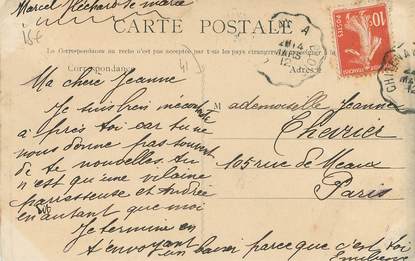 Marcel Richard le maire
CARTE POSTALE
La Correspondance au recto n'est pas acceptée par tous les pays étrangers
Correspondance
Adresse
15f
41
Ma chère Jeanne
Je suis bien mécontente
après toi car tu ne
nous donne pas souvent
de te nouvelles. tu
n'est qu'une vilaine
paresseuse et Andrée
en autant que moi
Je termine en
t'envoyant un baiser parce que c'est toi
Emilienne
Mademoiselle Jeanne
Chevrier
105 rue de Meaux
Paris
POSTES
10
MARS
12